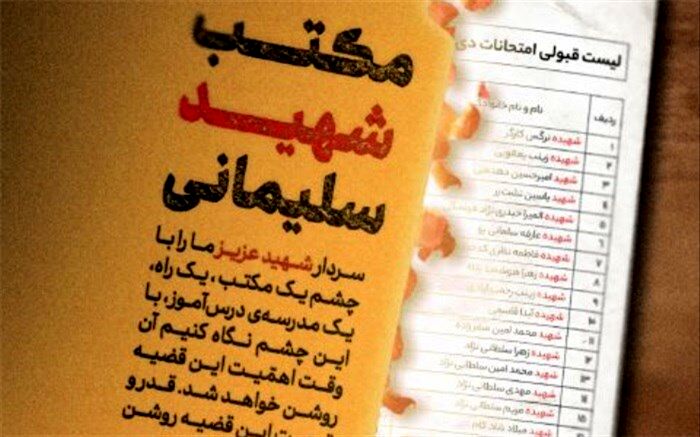 مکتب
شهید
سلیمانی
سردار شهید عزیز ما را با
چشم یک مکتب، یک راه،
یک مدرسه‌ی درس‌آموز، با
این چشم نگاه کنیم آن
وقت اهمّیت این قضیه
روشن خواهد شد. قدر و
این قضیه روشن
لیست قبولی امتحانات دی
ردیف نام و نام خانوادگی
۱ شهیده نرگس کارگر
۲ شهیده زینب یعقوبی
۳ شهید امیرحسین
۴ شهید یاسین
۵ شهیده المیرا حیدری نژاد
۶ شهیده عارفه سلمانی
۷ شهیده فاطمه نظری
۸ شهیده زهرا
۹ شهیده زینب
۱۰ شهیده آیدا قاسمی
۱۱ شهید محمد امین
۱۲ شهیده زهرا سلطانی نژاد
۱۳ شهید محمد امین سلطانی نژاد
۱۴ شهید مهدی سلطانی نژاد
۱۵ شهیده مریم سلطانی نژاد
شهید میلاد